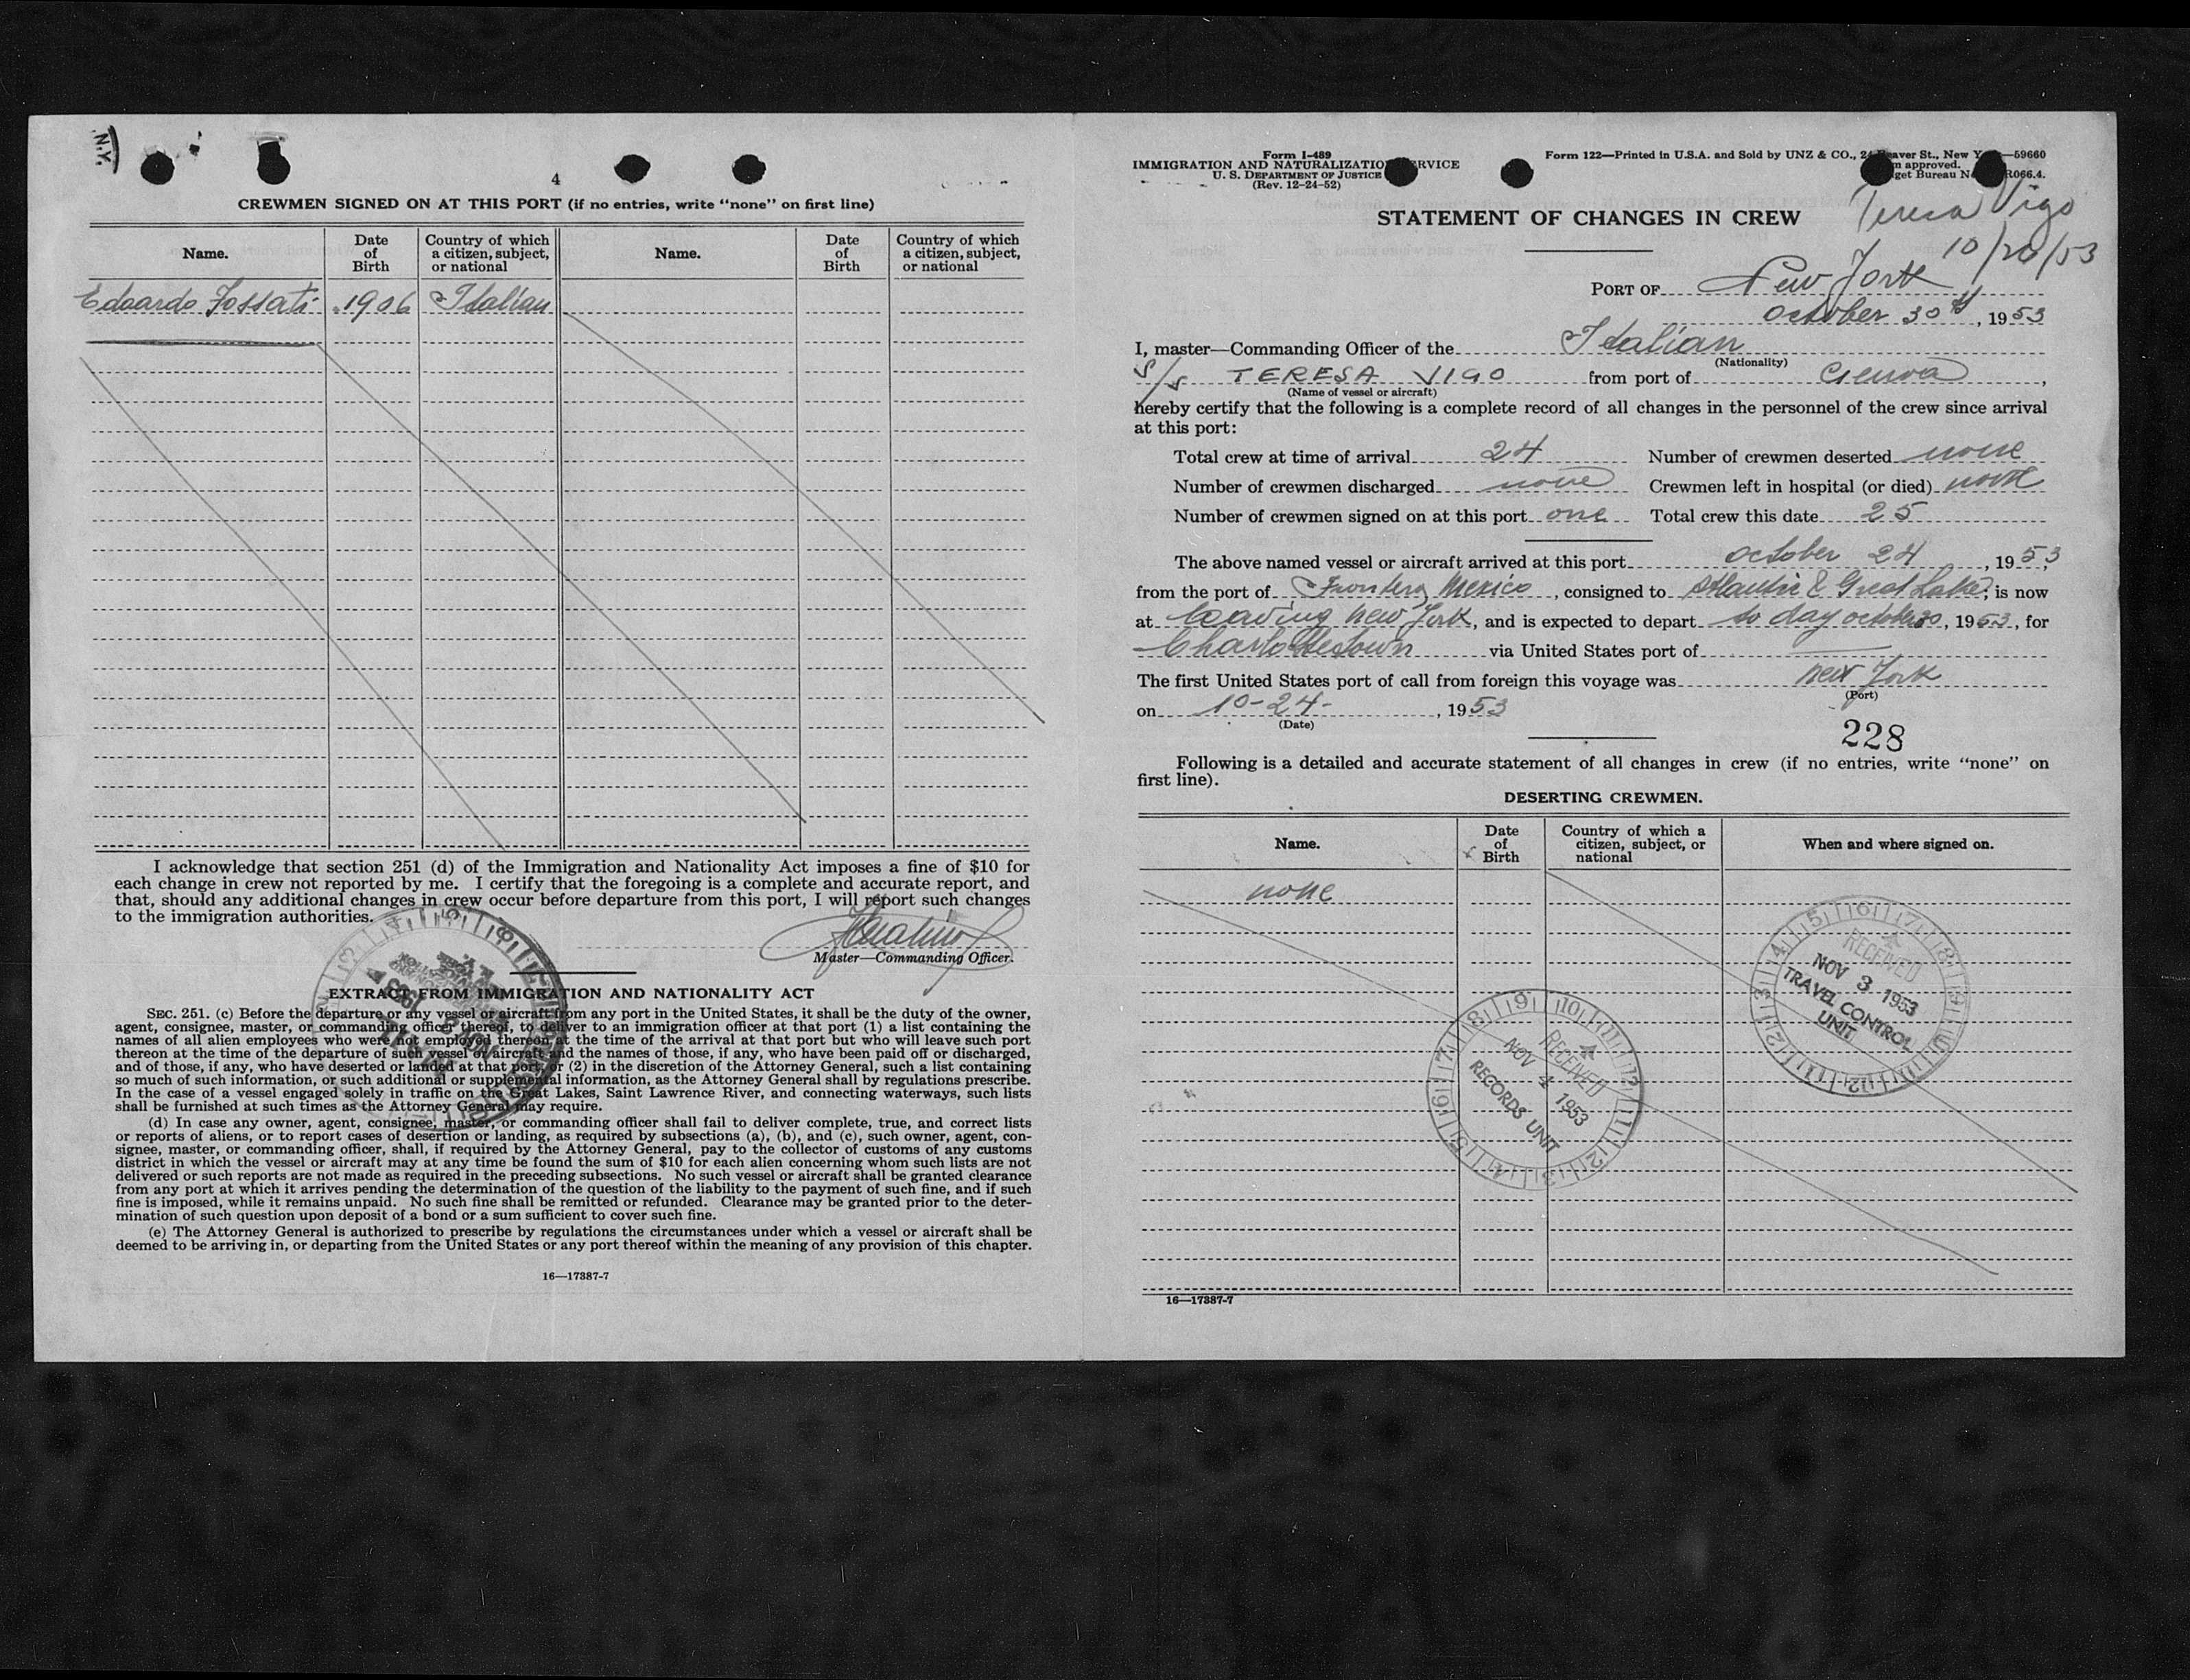 N.Y.
4
CREWMEN SIGNED ON AT THIS PORT (if no entries, write “none” on first line)
Name. Date of Birth Country of which a citizen, subject, or national Name. Date of Birth Country of which a citizen, subject, or national
Edoardo Fossati 1906 Italian
I acknowledge that section 251 (d) of the Immigration and Nationality Act imposes a fine of $10 for
each change in crew not reported by me. I certify that the foregoing is a complete and accurate report, and
that, should any additional changes in crew occur before departure from this port, I will report such changes
to the immigration authorities.
Master—Commanding Officer.
EXTRACT FROM IMMIGRATION AND NATIONALITY ACT
SEC. 251. (c) Before the departure or any vessel or aircraft from any port in the United States, it shall be the duty of the owner,
agent, consignee, master, or commanding officer thereof, to deliver to an immigration officer at that port (1) a list containing the
names of all alien employees who were not employed thereon at the time of the arrival at that port but who will leave such port
thereon at the time of the departure of such vessel or aircraft and the names of those, if any, who have been paid off or discharged,
and of those, if any, who have deserted or landed at that port, or (2) in the discretion of the Attorney General, such a list containing
so much of such information, or such additional or supplemental information, as the Attorney General shall by regulations prescribe.
In the case of a vessel engaged solely in traffic on the Great Lakes, Saint Lawrence River, and connecting waterways, such lists
shall be furnished at such times as the Attorney General may require.
(d) In case any owner, agent, consignee, master, or commanding officer shall fail to deliver complete, true, and correct lists
or reports of aliens, or to report cases of desertion or landing, as required by subsections (a), (b), and (c), such owner, agent, con-
signee, master, or commanding officer, shall, if required by the Attorney General, pay to the collector of customs of any customs
district in which the vessel or aircraft may at any time be found the sum of $10 for each alien concerning whom such lists are not
delivered or such reports are not made as required in the preceding subsections. No such vessel or aircraft shall be granted clearance
from any port at which it arrives pending the determination of the question of the liability to the payment of such fine, and if such
fine is imposed, while it remains unpaid. No such fine shall be remitted or refunded. Clearance may be granted prior to the deter-
mination of such question upon deposit of a bond or a sum sufficient to cover such fine.
(e) The Attorney General is authorized to prescribe by regulations the circumstances under which a vessel or aircraft shall be
deemed to be arriving in, or departing from the United States or any port thereof within the meaning of any provision of this chapter.
16—17387-7
Form I-489
IMMIGRATION AND NATURALIZATION SERVICE
U. S. DEPARTMENT OF JUSTICE
(Rev. 12-24-52)
Form 122—Printed in U.S.A. and Sold by UNZ & CO., 24 Beaver St., New Y—59660
m approved.
get Bureau N R066.4.
Teresa Vigo
10/20/53
STATEMENT OF CHANGES IN CREW
PORT OF New York
October 30th, 1953
I, master—Commanding Officer of the Italian
(Nationality)
S/S TERESA VIGO from port of Genova,
(Name of vessel or aircraft)
hereby certify that the following is a complete record of all changes in the personnel of the crew since arrival
at this port:
Total crew at time of arrival 24 Number of crewmen deserted none
Number of crewmen discharged none Crewmen left in hospital (or died) none
Number of crewmen signed on at this port one Total crew this date 25
The above named vessel or aircraft arrived at this port October 24, 1953,
from the port of Frontera Mexico, consigned to Atlantic & Great Lakes; is now
at leaving New York, and is expected to depart to day october 30, 1953, for
Charlottestown via United States port of
The first United States port of call from foreign this voyage was New York
(Port)
on 10-24-, 1953
(Date)
228
Following is a detailed and accurate statement of all changes in crew (if no entries, write “none” on
first line).
DESERTING CREWMEN.
Name. Date of Birth Country of which a citizen, subject, or national When and where signed on.
none
RECEIVED
NOV 3 1953
TRAVEL CONTROL
UNIT
RECEIVED
NOV 4 1953
RECORDS UNIT
16—17387-7